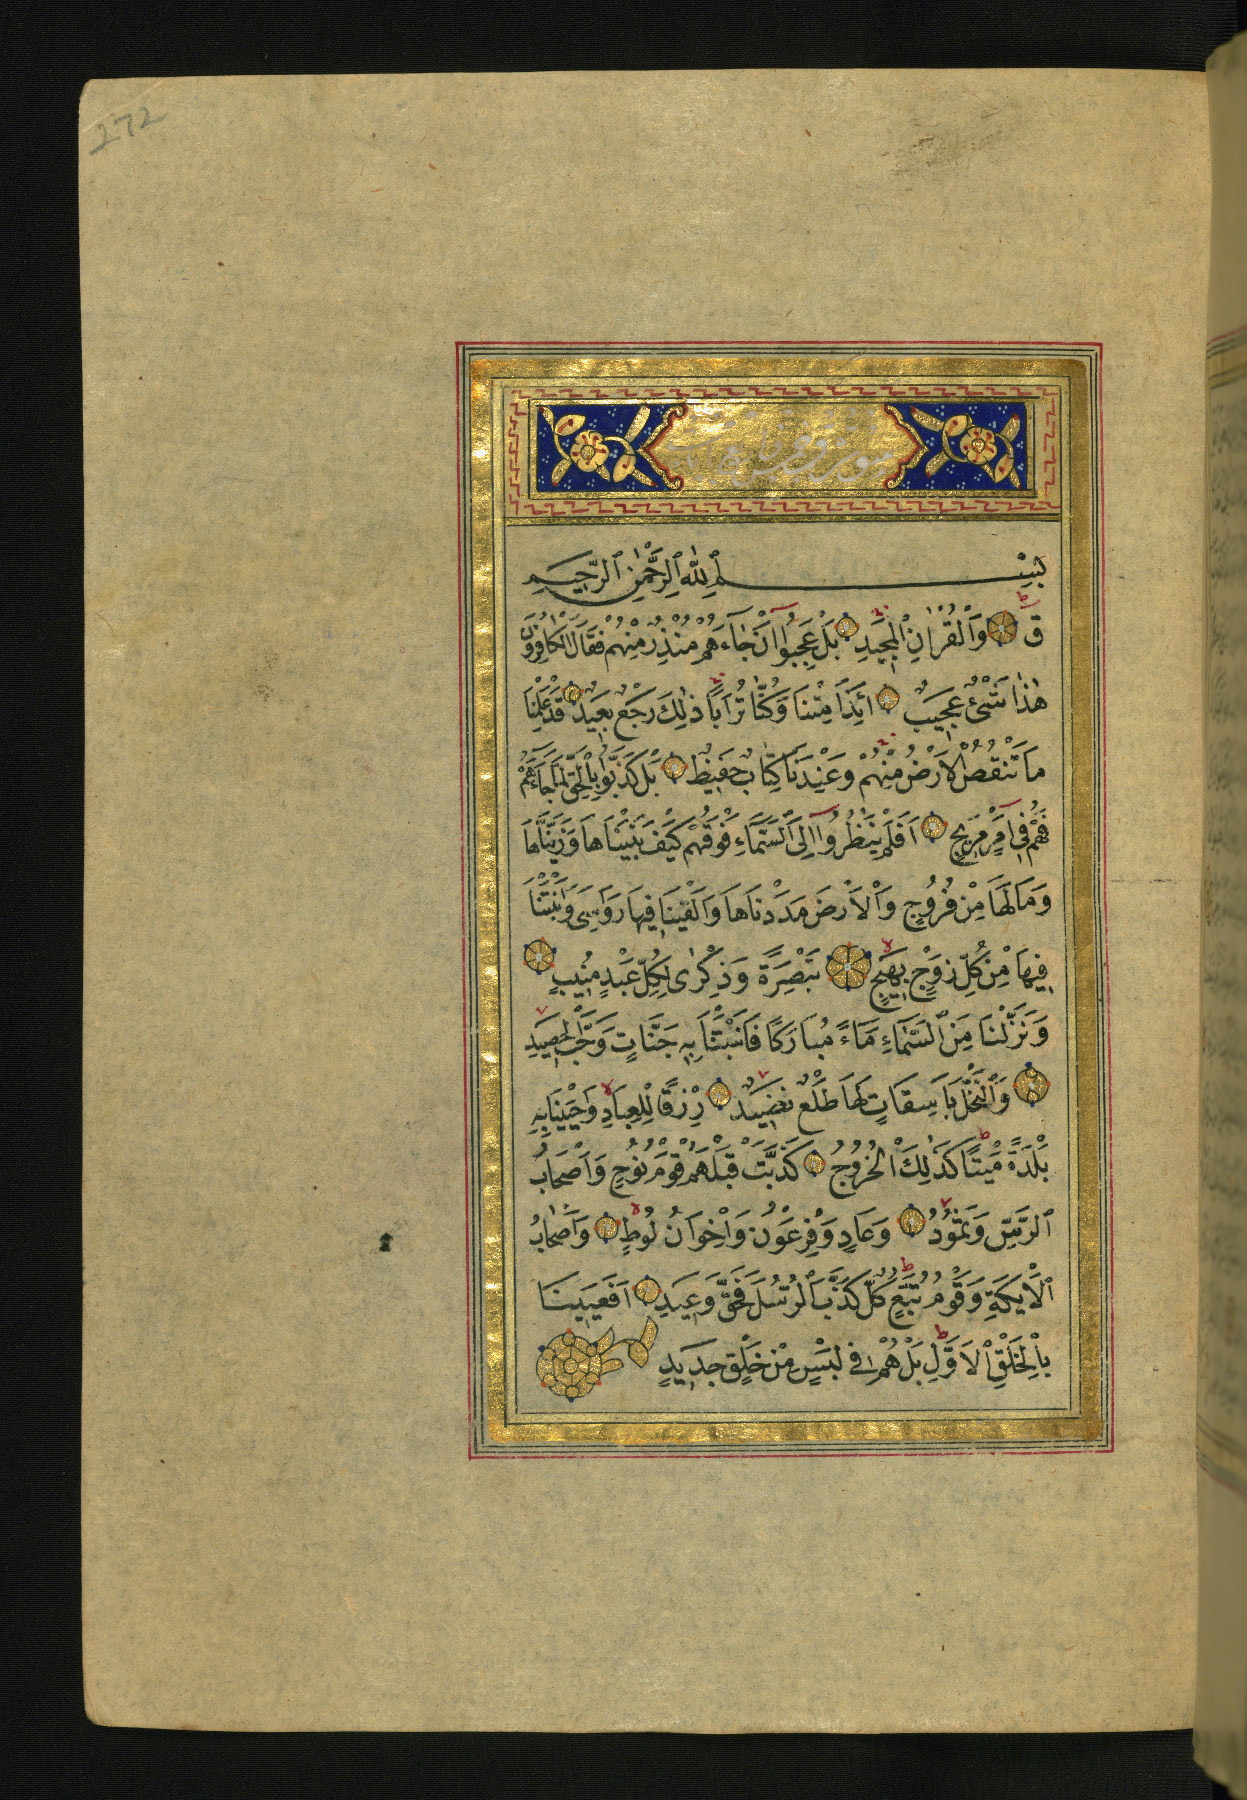 272
سورة ق
بسم ٱلله ٱلرَّحْمٰنِ ٱلرَّحِيمِ
قٓ وَٱلْقُرْاٰنِ ٱلْمَجِيدِ بَلْ عَجِبُٓوا اَنْ جَٓاءَهُمْ مُنْذِرٌ مِنْهُمْ فَقَالَ الْكَافِرُونَ
هٰذَا شَىْءٌ عَجِيبٌ اَئِذَا مِتْنَا وَكُنَّا تُرَابًا ذٰلِكَ رَجْعٌ بَعِيدٌ قَدْ عَلِمْنَا
مَا تَنْقُصُ الْاَرْضُ مِنْهُمْ وَعِنْدَنَا كِتَابٌ حَفِيظٌ بَلْ كَذَّبُوا بِالْحَقِّ لَمَّا جَٓاءَهُمْ
فَهُمْ فِٓى اَمْرٍ مَرِيجٍ اَفَلَمْ يَنْظُرُٓوا اِلَى ٱلسَّمَٓاءِ فَوْقَهُمْ كَيْفَ بَنَيْنَاهَا وَزَيَّنَّاهَا
وَمَا لَهَا مِنْ فُرُوجٍ وَٱلْاَرْضَ مَدَدْنَاهَا وَاَلْقَيْنَا فِيهَا رَوَاسِىَ وَاَنْبَتْنَا
فِيهَا مِنْ كُلِّ زَوْجٍ بَهِيجٍ تَبْصِرَةً وَذِكْرٰى لِكُلِّ عَبْدٍ مُنِيبٍ
وَنَزَّلْنَا مِنَ ٱلسَّمَٓاءِ مَٓاءً مُبَارَكًا فَاَنْبَتْنَا بِهِ جَنَّاتٍ وَحَبَّ الْحَصِيدِ
وَٱلنَّخْلَ بَاسِقَاتٍ لَهَا طَلْعٌ نَضِيدٌ رِزْقًا لِلْعِبَادِ وَاَحْيَيْنَا بِهِ
بَلْدَةً مَيْتًا كَذٰلِكَ الْخُرُوجُ كَذَّبَتْ قَبْلَهُمْ قَوْمُ نُوحٍ وَاَصْحَابُ
ٱلرَّسِّ وَثَمُودُ وَعَادٌ وَفِرْعَوْنُ وَاِخْوَانُ لُوطٍ وَاَصْحَابُ
ٱلْاَيْكَةِ وَقَوْمُ تُبَّعٍ كُلٌّ كَذَّبَ ٱلرُّسُلَ فَحَقَّ وَعِيدِ اَفَعَيِينَا
بِٱلْخَلْقِ ٱلْاَوَّلِ بَلْ هُمْ فِى لَبْسٍ مِنْ خَلْقٍ جَدِيدٍ